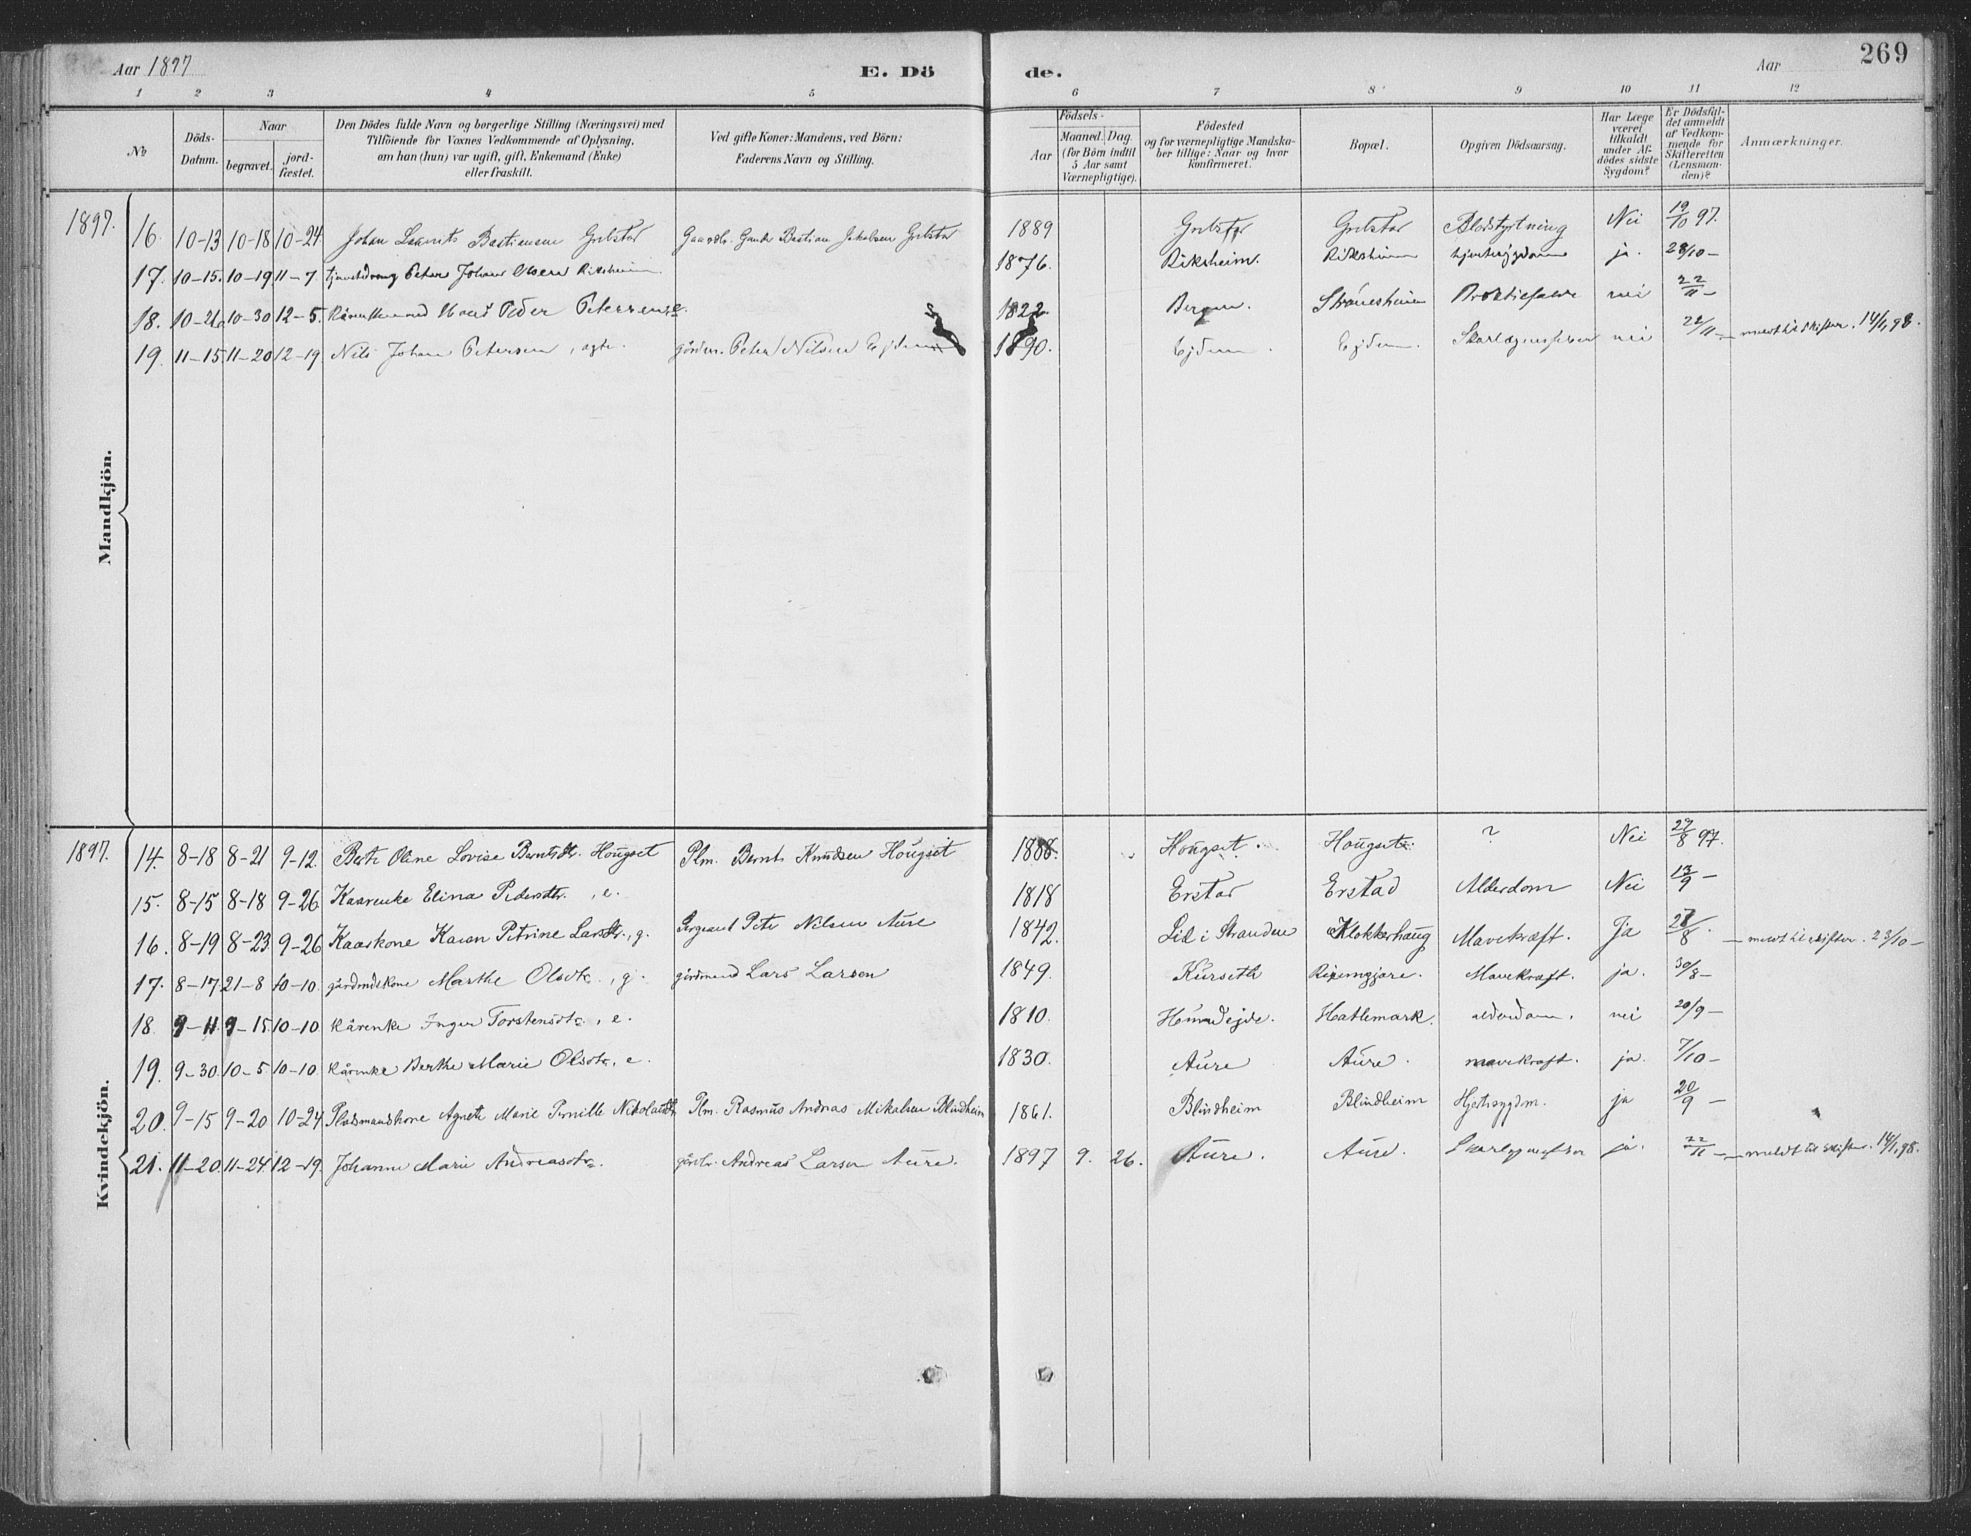 Aar 1897 E. Dö de. Aar 269
1 2 3 4 5 6 7 8 9 10 11 12
№
Döds-Datum.
Naar
begravet.
jord-fæstet.
Den Dödes fulde Navn og borgerlige Stilling (Næringsvei) med
Tilföiende for Voxnes Vedkommende af Oplysning,
om han (hun) var ugift, gift, Enkemand (Enke)
eller fraskilt.
Ved gifte Koner: Mandens, ved Börn:
Faderens Navn og Stilling.
Födsels-
Aar
Maaned. Dag.
(for Börn indtil
5 Aar samt
Værnepligtige).
Födested
og for værnepligtige Mandska-
ber tillige: Naar og hvor
konfirmeret.
Bopæl.
Opgiven Dödsaarsag.
Har Læge
været
tilkaldt
under Af-
dödes sidste
Sygdom?
Er Dödsfal-
det anmeldt
af Vedkom-
mende for
Skifteretten
(Lensman-
den)?
Anmærkninger.
Mandkjön.
1897. 16. 10-13 10-18 10-24 Johan Bastiansen Grebstad Bastian Jakobsen Grebstad 1889 Grebstad Grebstad Blodstyrtning Nei 19/10 97.
17. 10-15. 10-19 11-7 Peter Johan Olsen Riksheim 1876. Riksheim. Riksheim ja. 28/10 -
18. 10-26 10-30 12-5. Peder Petersen 1822 Bergen. nei 22/11 -
19. 11-15 11-20 12-19 Nils Johan Petersen, ægte. gårdm. Peter Nilsen Ejdem 1890. Ejdem. Ejdem. nei 22/11 - meldt til skifter. 14/1, 98.
Kvindekjön.
1897. 14. 8-18 8-21 9-12. Berte Oline Lovise Berntsdtr. Hougset Plm. Bernt Knudsen Hougset 1888. Hougset. Hougset. ? Nei 27/8 97.
15. 8-15 8-18 9-26 Kaarenke Elina Pedersdtr., e. 1818 Erstad Erstad Alderdom Nei 13/9 -
16. 8-19 8-23 9-26 Kaarkone Karen Petrine Larsdtr., g. Sergeant Peter Nilsen Aure 1842. Lid i Stranden Klokkerhaug Mavekræft. Ja 28/8. - meldt til skifter. 23/10 -
17. 8-17 21-8 10-10. gårdmdskone Marthe Olsdtr., g. gårdmand Lars Larsen 1849. Kurseth Mavekræft. ja. 30/8 -
18. 9-11 9-15 10-10 Kårenke Inger Torstensdtr., e. 1810. Hatlemark. alderdom. nei 20/9 -
19. 9-30 10-5 10-10 Kårenke Berthe Marie Olsdtr., e. 1830. Aure Aure. mavekræft. ja. 7/10 -
20. 9-15 9-20 10-24 Pladsmandskone Agnete Marie Pernille Nikolaidtr. Plm. Rasmus Andreas Mikalsen Blindheim 1861. Blindheim Blindheim Hjertesygdm. ja 20/9 -
21. 11-20 11-24 12-19. Johanne Marie Andreasdtr. gårdbr. Andreas Larsen Aure. 1897 9. 26. Aure. Aure. ja. 22/11 - meldt til skifter. 14/1, 98.